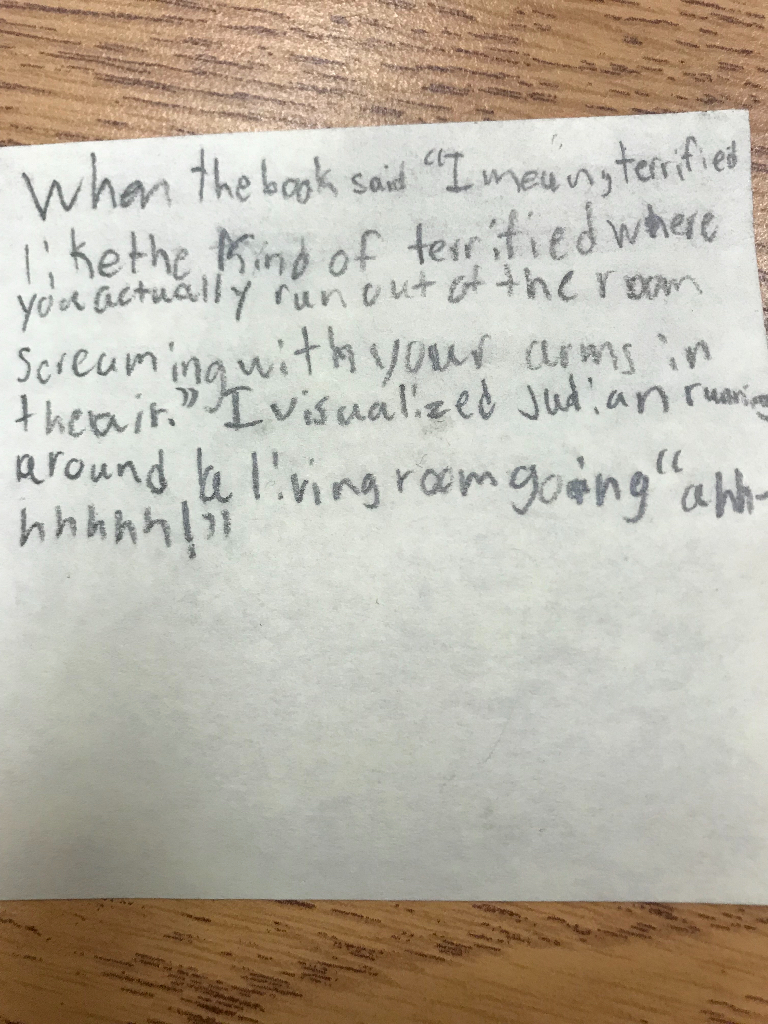 When the book said "I mean, terrified
like the kind of terrified where
you actually run out of the room
screaming with your arms in
the air." I visualized Judian running
around a living room going "ahh-
hhhhh!"